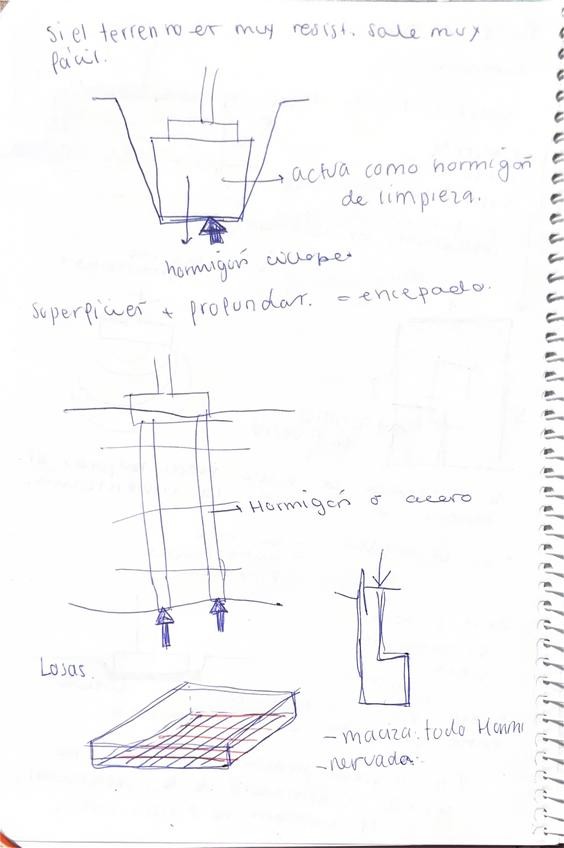 Si el terreno er muy resist. sale muy
fácil.
actua como hormigón
de limpieza.
hormigón ciclope.
superficier + profundar. = encepado.
Hormigón o acero
Losas.
- maciza: todo Hormi
- nervada.